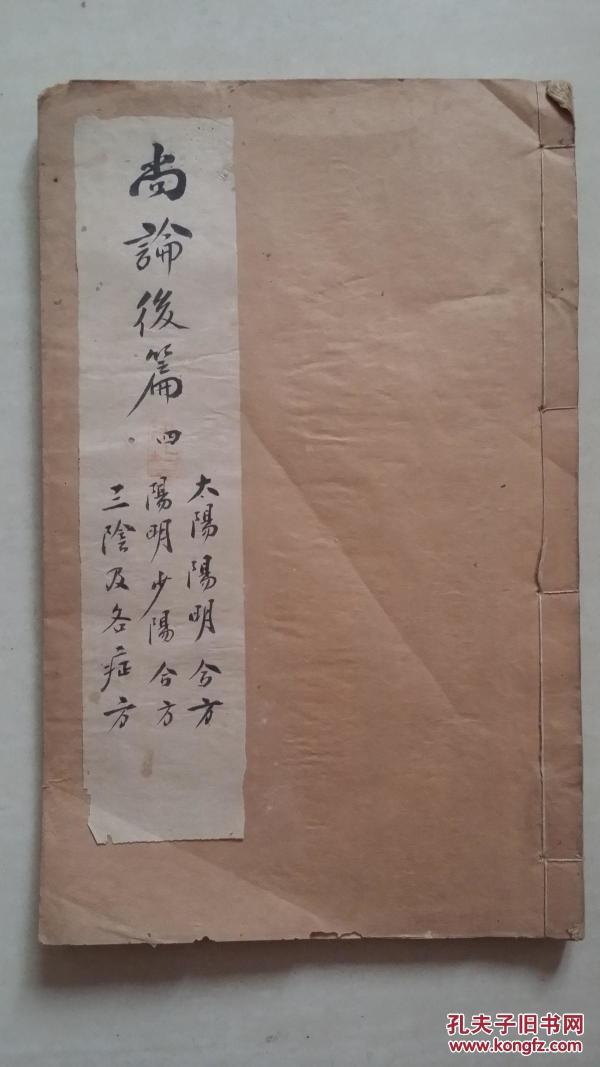 尚論後篇 四
太陽陽明合方
陽明少陽合方
三陰及各症方
孔夫子旧书网
www.kongfz.com